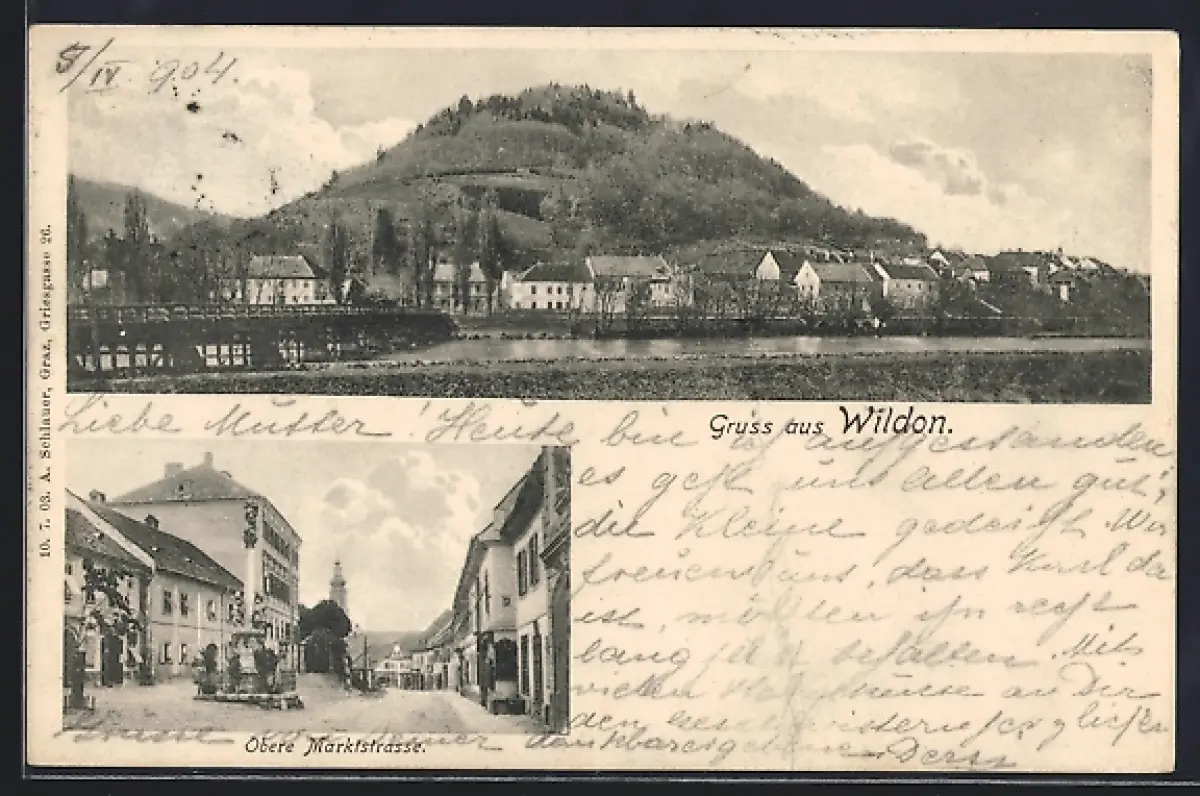 5/IV 904.
10. 7. 03. A. Schlauer, Graz, Griesgasse 26.
Gruss aus Wildon.
Liebe Mutter! Heute bin ich aufgestanden
es geht uns allen gut,
die Kleine gedeiht. Wir
freuen uns, dass Karl da
ist, möchten ihn recht
lang hier behalten. Mit
vielen an Dir
den Geschwistern herzlichen
Obere Marktstrasse.
Deiner dankbarergebenen